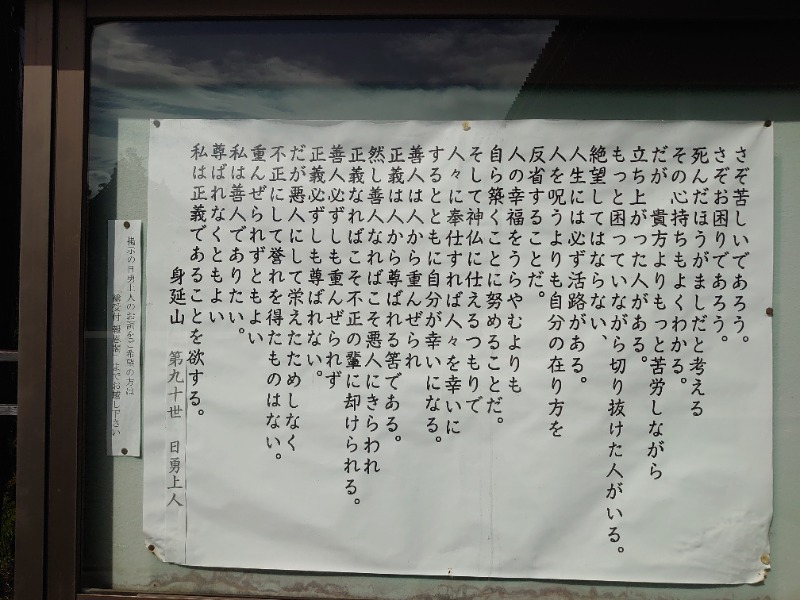 さぞ苦しいであろう。
さぞお困りであろう。
死んだほうがましだと考える
その心持ちもよくわかる。
だが　貴方よりもっと苦労しながら
立ち上がった人がある。
もっと困っていながら切り抜けた人がいる。
絶望してはならない、
人生には必ず活路がある。
人を呪うよりも自分の在り方を
反省することだ。
人の幸福をうらやむよりも
自ら築くことに努めることだ。
そして神仏に仕えるつもりで
人々に奉仕すれば人々を幸いに
するとともに自分が幸いになる。
善人は人から重んぜられ
正義は人から尊ばれる筈である。
然し善人なればこそ悪人にきらわれ
正義なればこそ不正の輩に却けられる。
善人必ずしも重んぜられず
正義必ずしも尊ばれない。
だが悪人にして栄えたためしなく
不正にして誉れを得たものはない。
重んぜられずともよい
私は善人でありたい。
尊ばれなくともよい
私は正義であることを欲する。
身延山　第九十世　日勇上人
掲示の日勇上人のお詞をご希望の方は
総受付 報恩閣 までお越し下さい